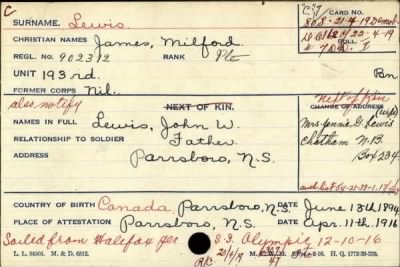 C
CARD NO.
SURNAME. Lewis
CHRISTIAN NAMES James, Milford.
FOLL.
REGL. NO. 902312 RANK Pte
UNIT 193 rd. Bn.
FORMER CORPS Nil.
also notify NEXT OF KIN. Next of Kin
CHANGE OF ADDRESS
NAMES IN FULL Lewis, John W. (wife)
Mrs. Jennie G. Lewis
RELATIONSHIP TO SOLDIER Father
Chatham N.B.
ADDRESS Parrsboro, N.S. Box 234
COUNTRY OF BIRTH Canada, Parrsboro, N.S. DATE June 13th 1894
PLACE OF ATTESTATION Parrsboro, N.S. DATE Apr. 11th 1916
Sailed from Halifax per S.S. Olympic 12-10-16